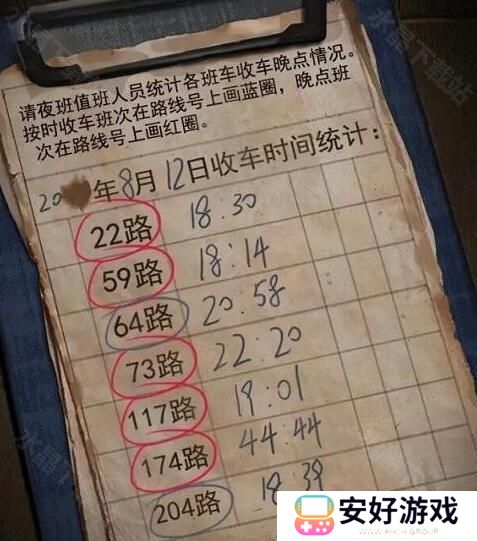 请夜班值班人员统计各班车收车晚点情况。
按时收车班次在路线号上画蓝圈，晚点班
次在路线号上画红圈。
20 年8月12日收车时间统计：
22路 18:30
59路 18:14
64路 20:58
73路 22:20
117路 19:01
174路 44:44
204路 18:39
安好游戏
水晶下载站